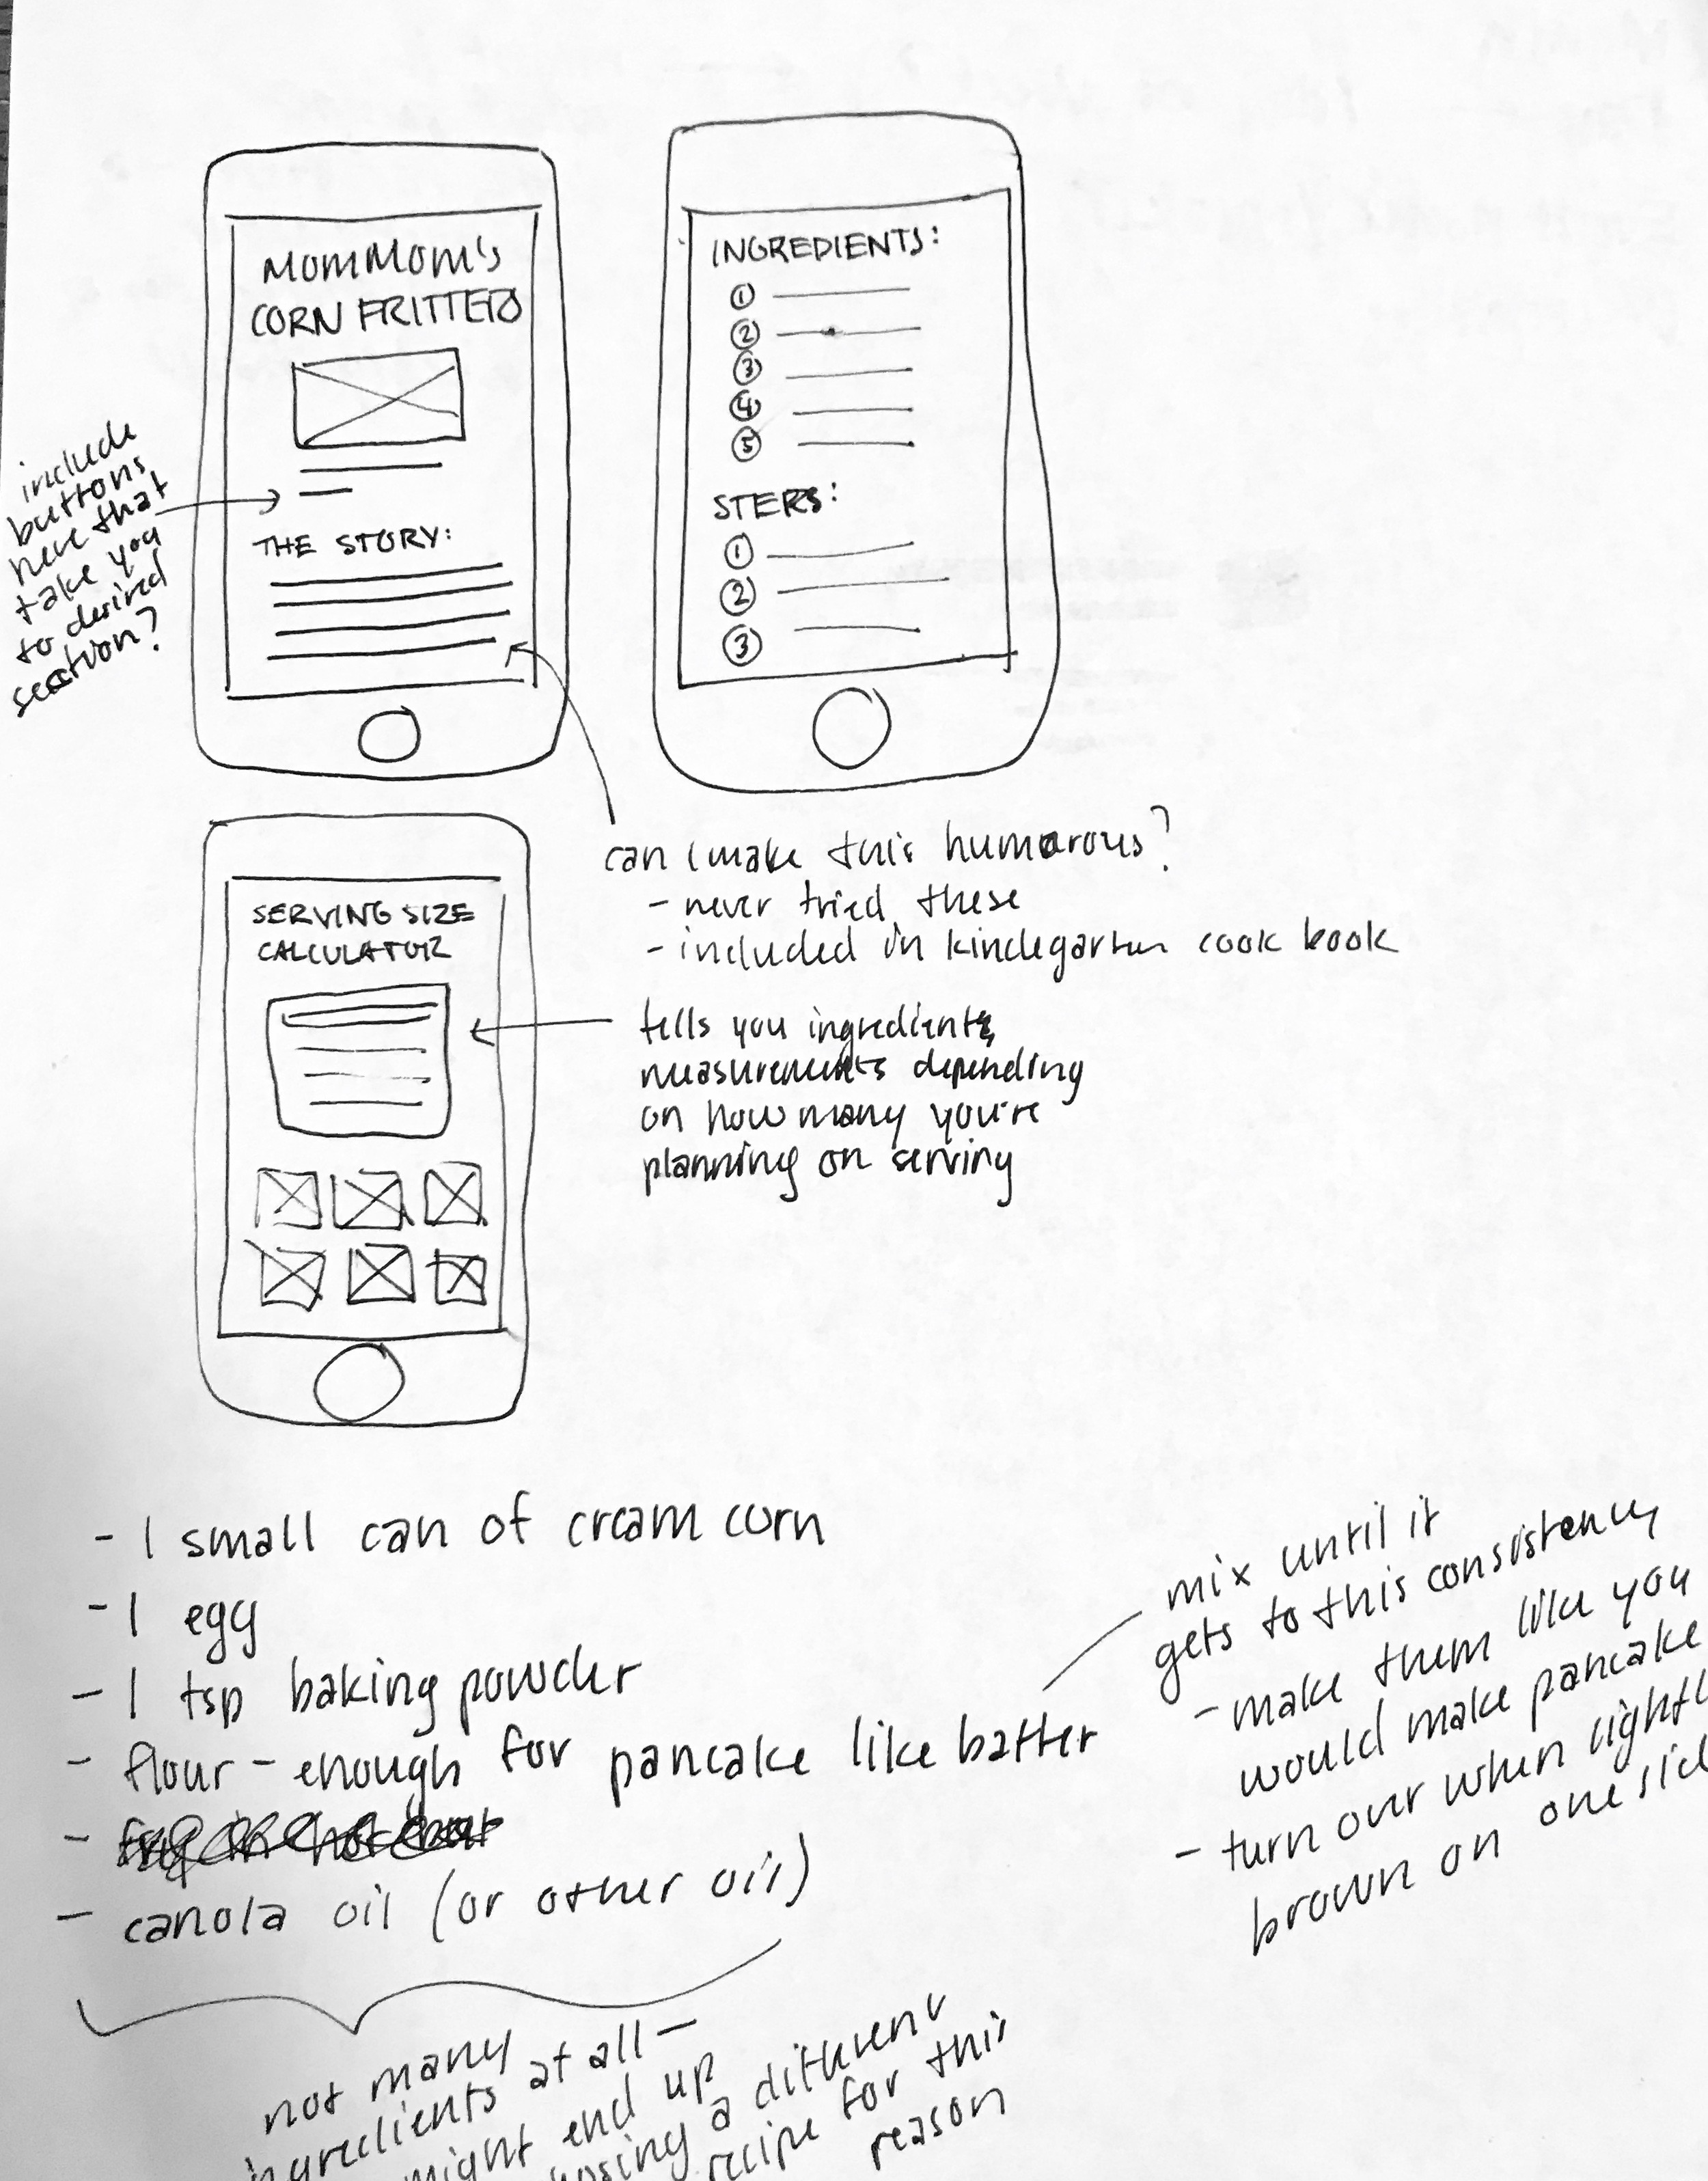 MOMMOM'S
CORN FRITTERS
THE STORY:
include
buttons
here that
take you
to desired
section?
INGREDIENTS:
1
2
3
4
5
STEPS:
1
2
3
can I make this humorous?
- never tried these
- included in kindegarten cook book
SERVING SIZE
CALCULATOR
tells you ingredients
measurements depending
on how many you're
planning on serving
- 1 small can of cream corn
- 1 egg
- 1 tsp baking powder
- flour - enough for pancake like batter
-
- canola oil (or other oil)
mix until it
gets to this consistency
- make them like you
would make pancake
- turn over when lightl
brown on one sid
not many
ngredients at all -
might end up
osing a different
recipe for this
reason